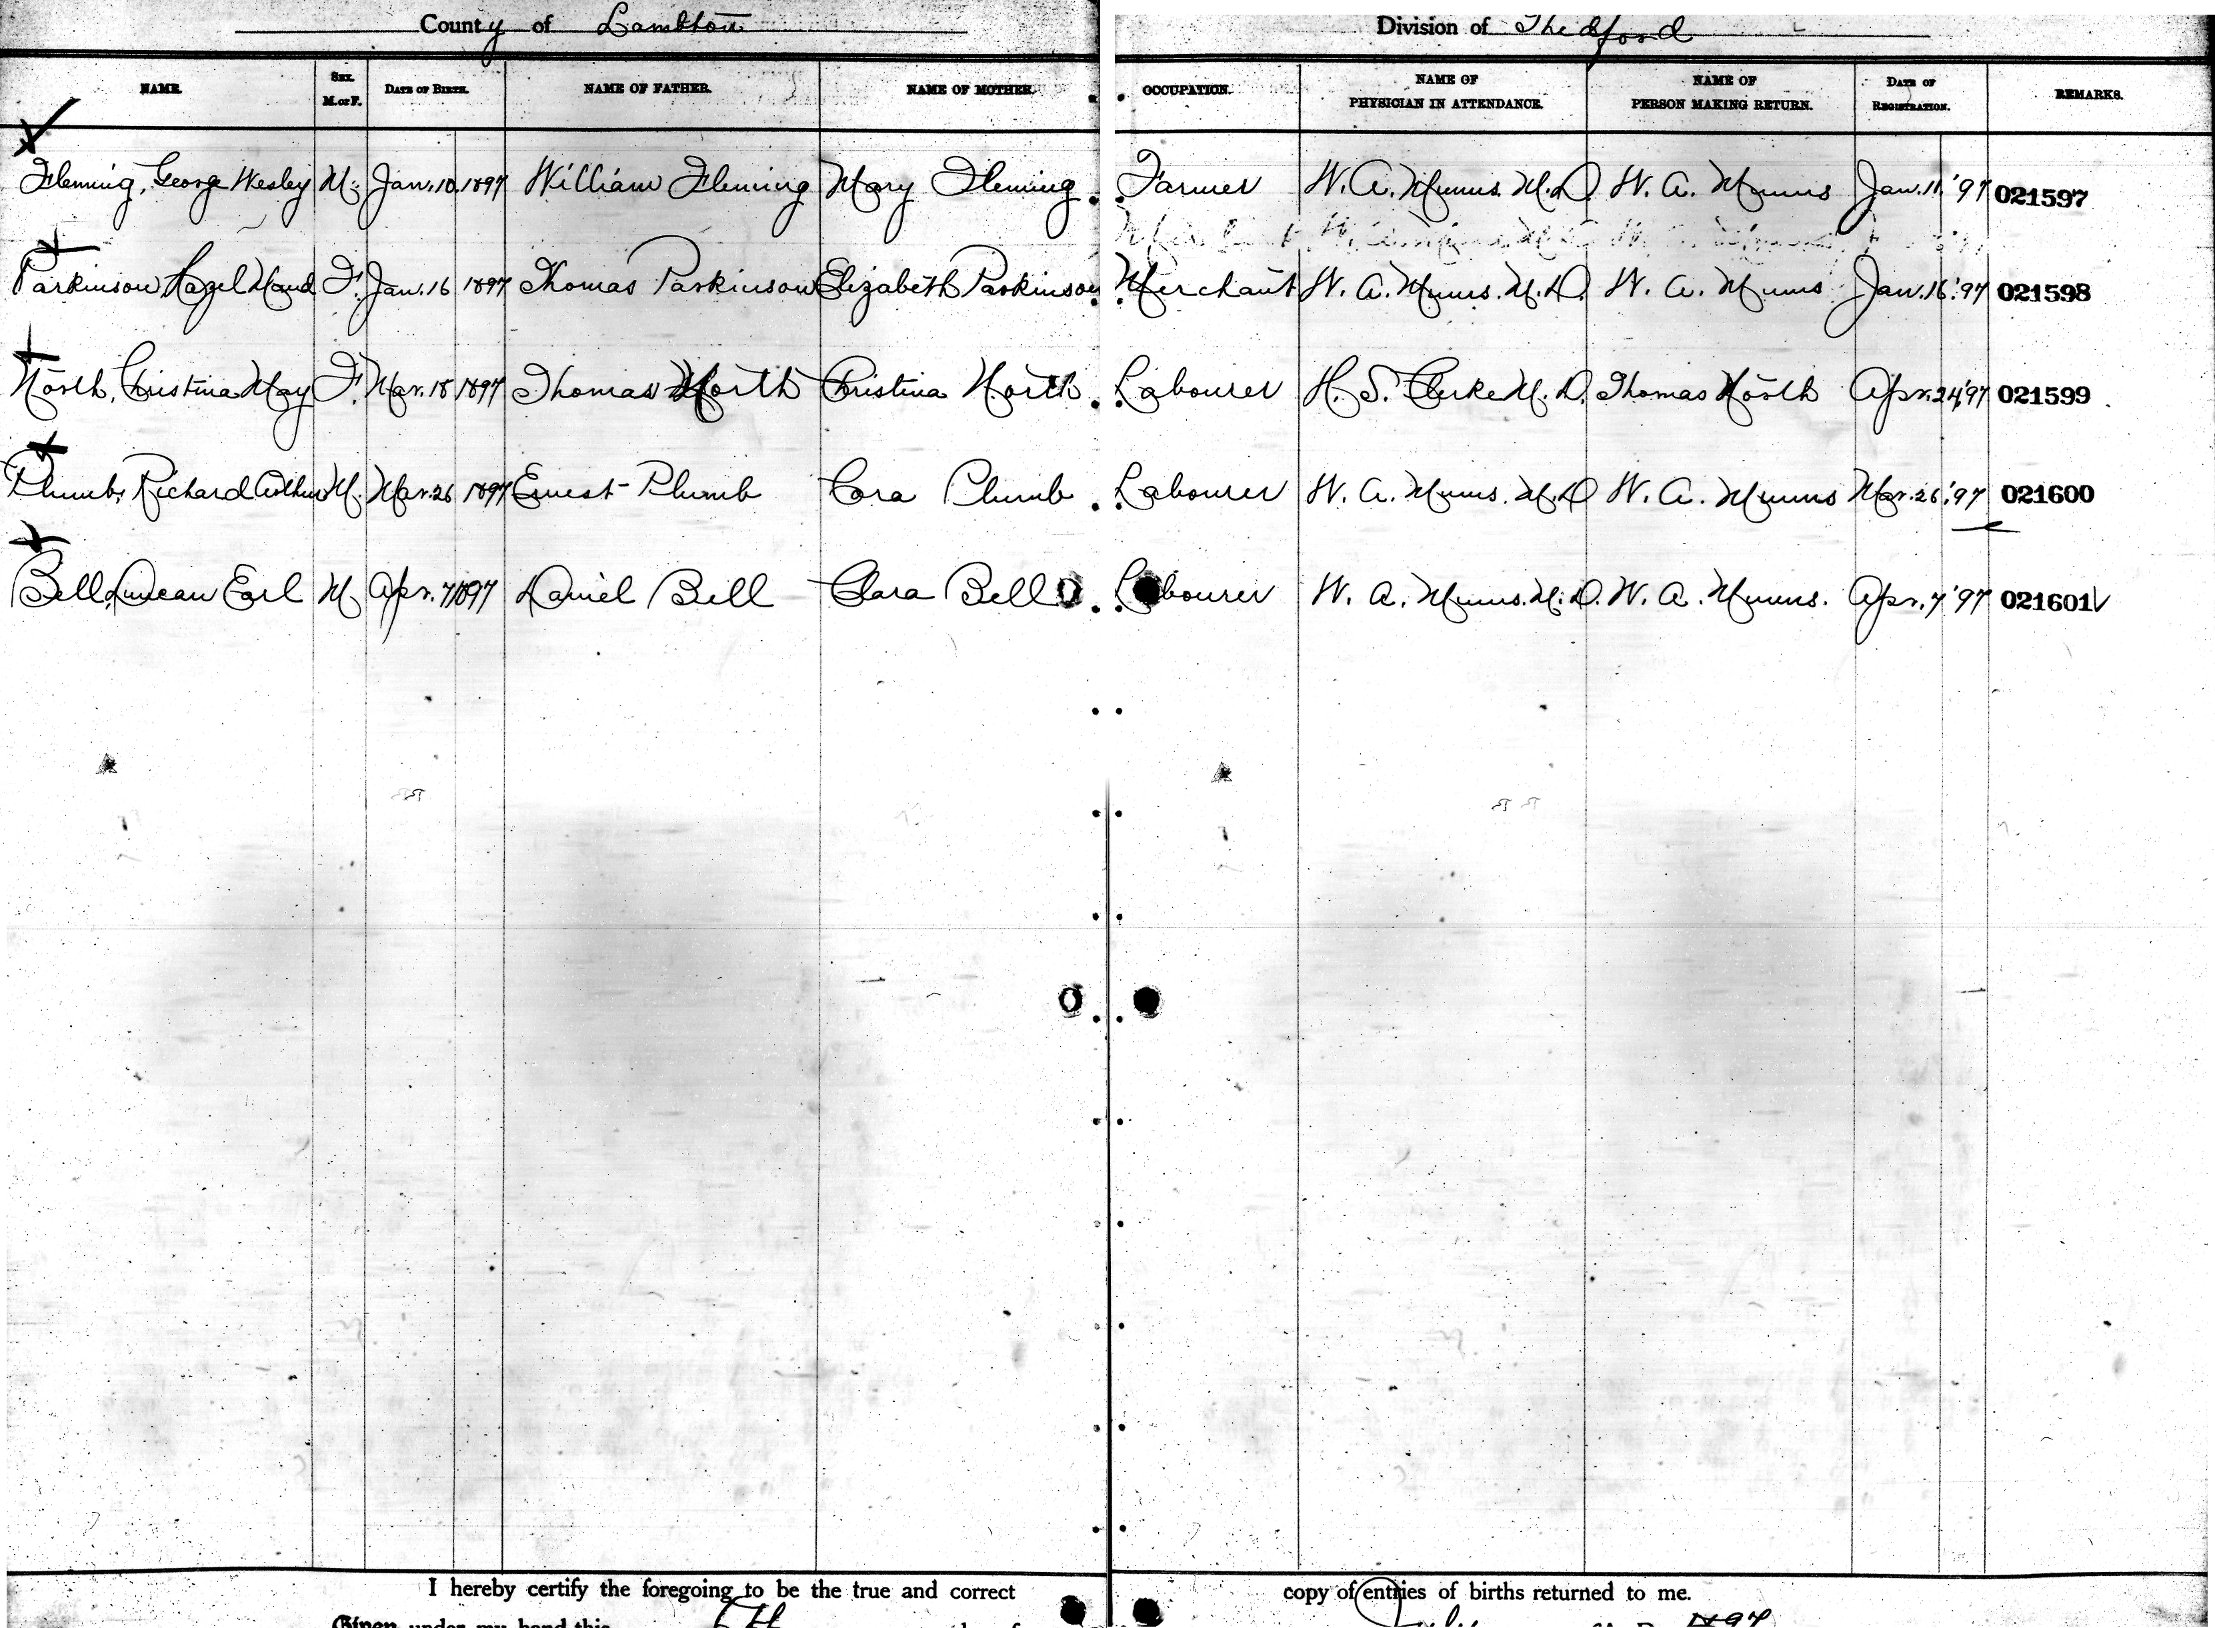 County of Lambton Division of Thedford
NAME. SEX. M. or F. DATE OF BIRTH. NAME OF FATHER. NAME OF MOTHER. OCCUPATION. NAME OF PHYSICIAN IN ATTENDANCE. NAME OF PERSON MAKING RETURN. DATE OF REGISTRATION. REMARKS.
Fleming, George Wesley M. Jan. 10 1897 William Fleming Mary Fleming Farmer W. A. Munns M.D. W. A. Munns Jan. 11 '97 021597
Parkinson, Hazel Maud F. Jan. 16 1897 Thomas Parkinson Elizabeth Parkinson Merchant W. A. Munns. M.D. W. A. Munns Jan. 16 '97 021598
North, Christina May F. Mar. 18 1897 Thomas North Christina North Labourer H. S. Clerke M.D. Thomas North Apr. 24 '97 021599
Plumb, Richard Arthur M. Mar. 26 1897 Ernest Plumb Cora Plumb Labourer W. A. Munns. M.D W. A. Munns Mar. 26 '97 021600
Bell, Duncan Earl M Apr. 7 1897 Daniel Bell Clara Bell Labourer W. A. Munns. M.D. W. A. Munns. Apr. 7 '97 021601
I hereby certify the foregoing to be the true and correct copy of entries of births returned to me.
Given under my hand this 1897